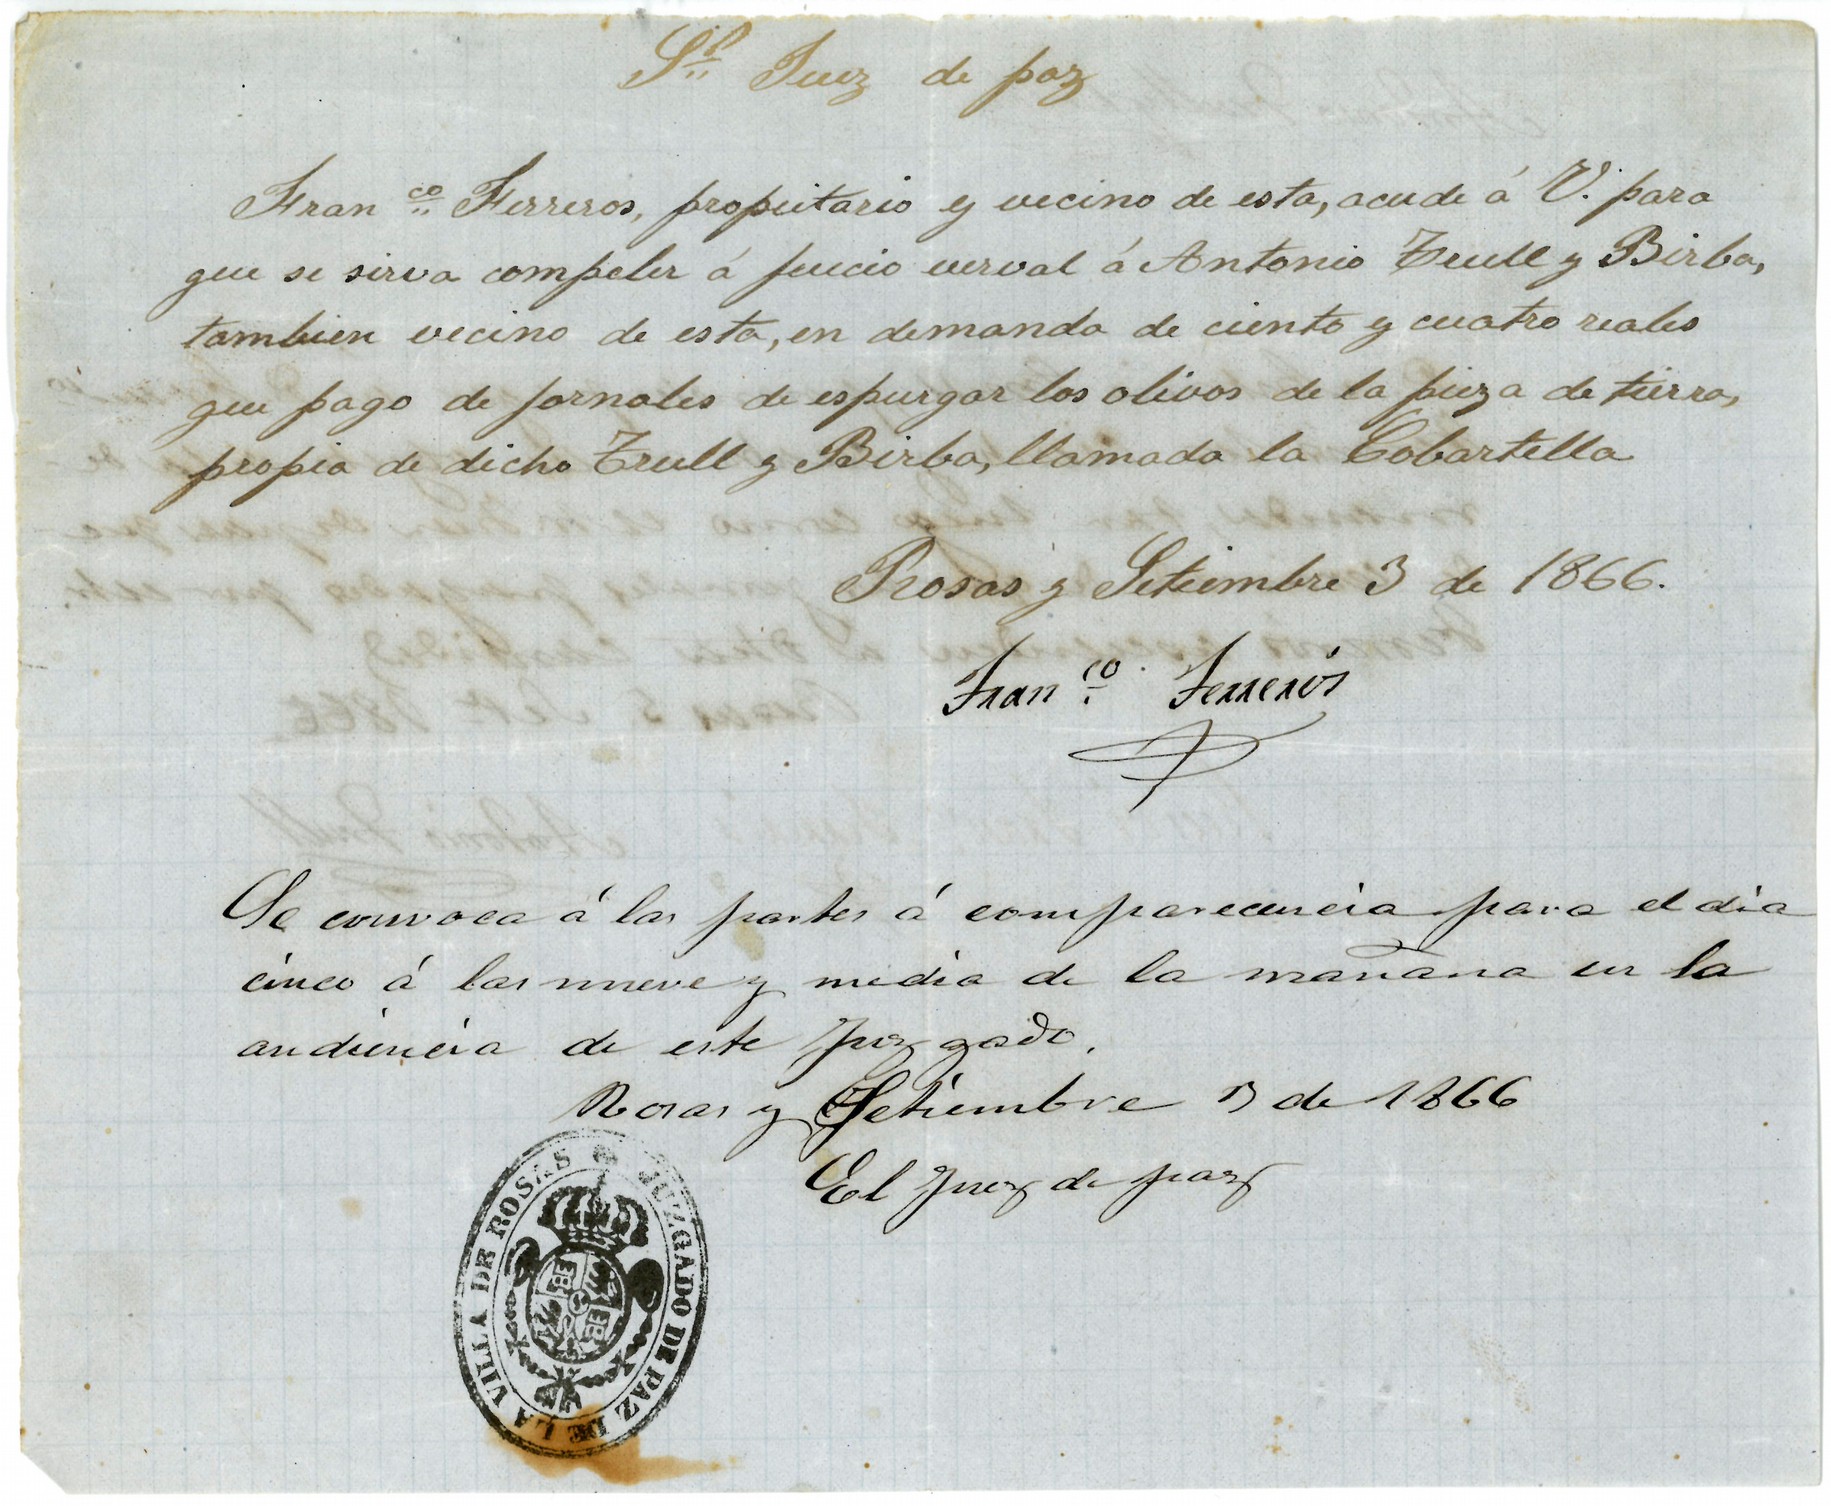 Sr. Juez de paz
Franco. Ferreros, propeitario y vecino de esta, acude á V. para
que se sirva compeler á juicio verval á Antonio Trull y Birba,
tambien vecino de esta, en demanda de ciento y cuatro reales
que pago de jornales de espurgar los olivos de la pieza de tierra,
propia de dicho Trull y Birba, llamada la Cobartella
Rosas y Setiembre 3 de 1866.
Franco. Ferreros
Se convoca á las partes á comparecencia para el dia
cinco á las nueve y media de la mañana en la
audiencia de este Juzgado.
Rosas y Setiembre 3 de 1866
El Juez de paz
JUZGADO DE PAZ DE LA VILLA DE ROSAS